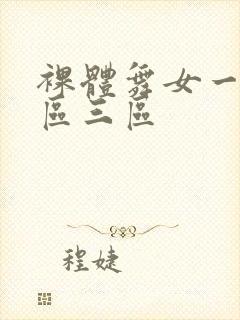 裸體舞女一
區三區
程婕